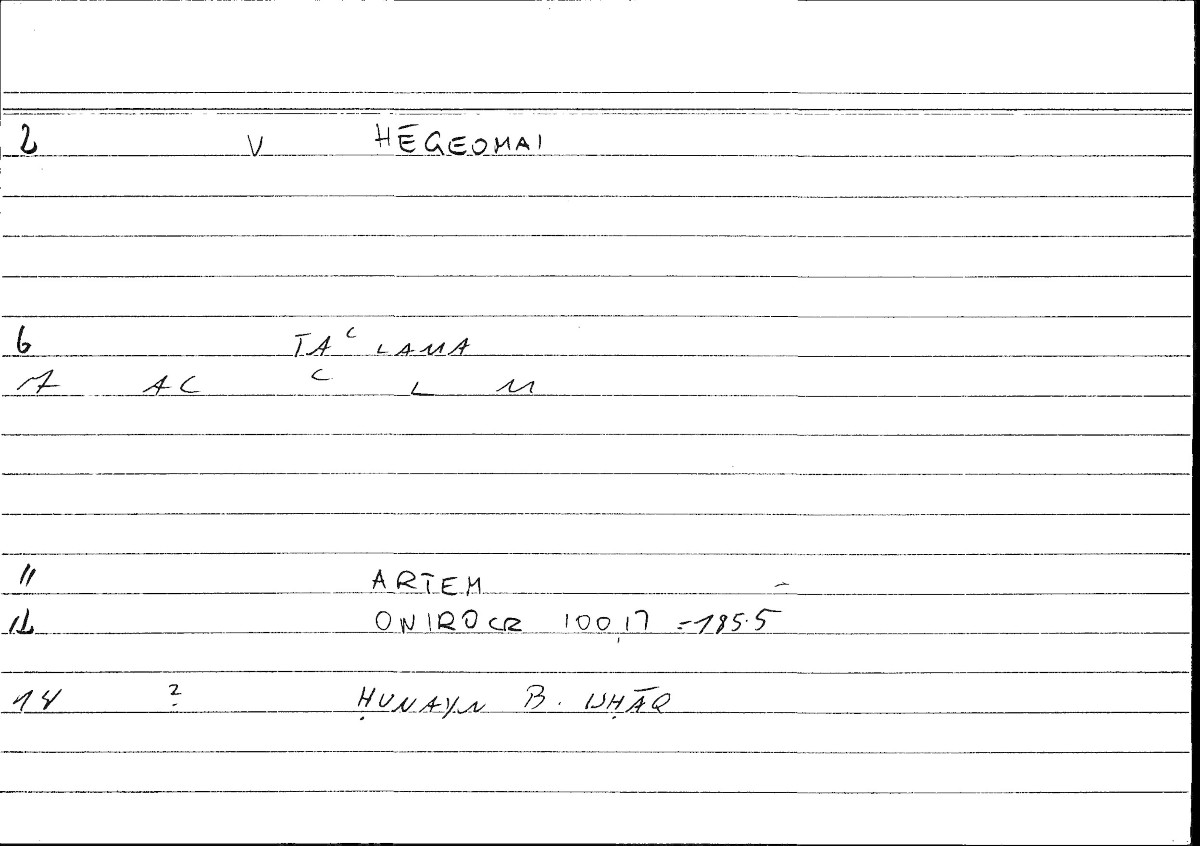 2 V HĒGEOMAI
6 TAʿLAMA
7 AC ʿ L M
11 ARTEM
12 ONIROCR 100,17 =185.5
14 2 ḤUNAYN B. ISḤĀQ